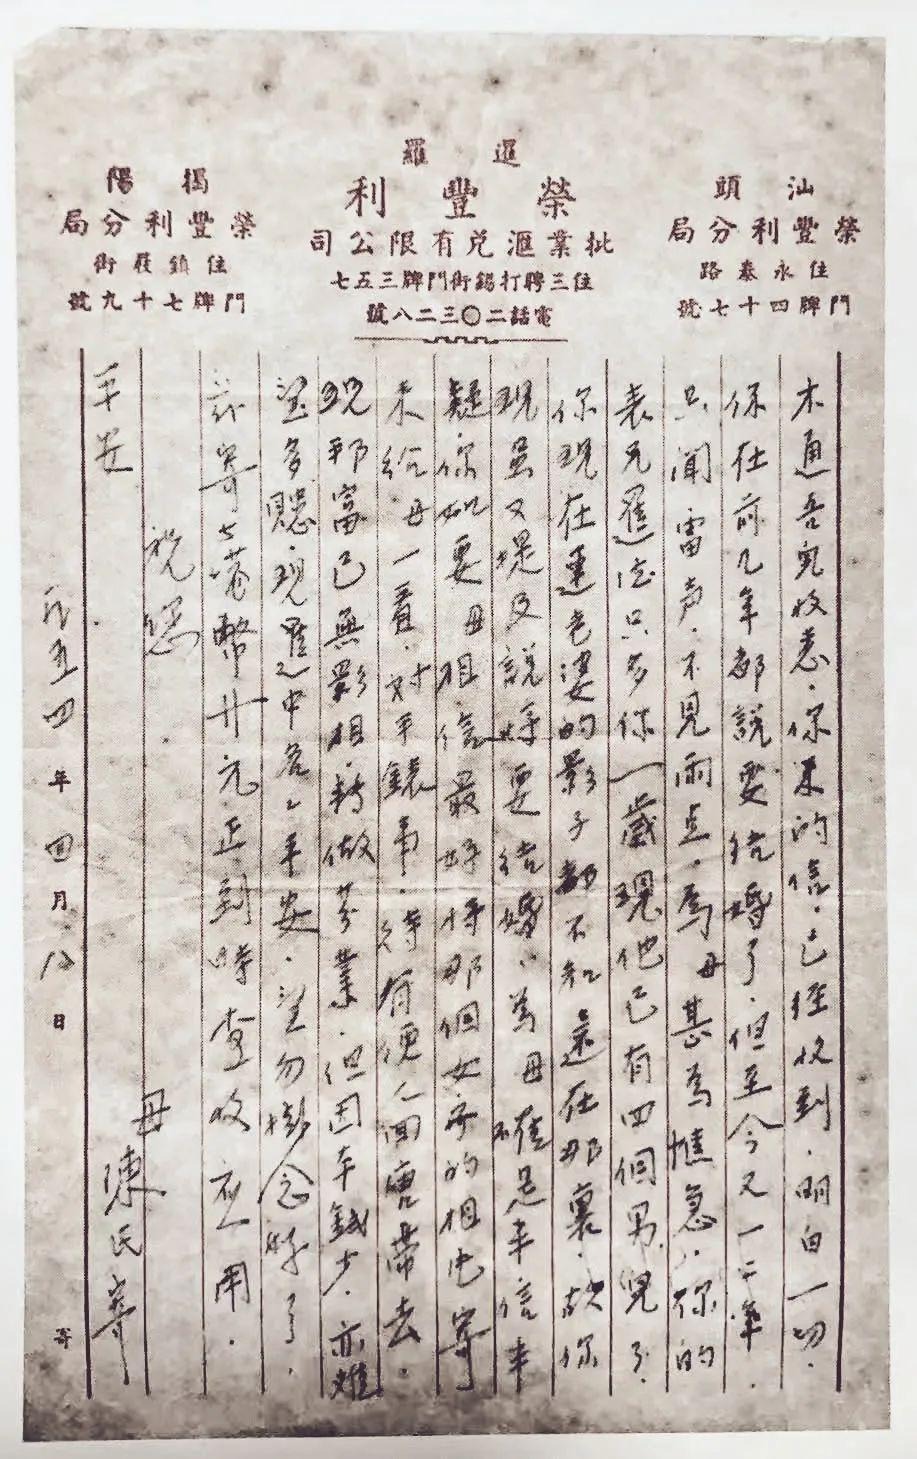 暹羅
榮豐利
批業滙兌有限公司
住三聘打錫街門牌三五七
電話二〇三二八號
汕頭
榮豐利分局
住永泰路
門牌四十七號
揭陽
榮豐利分局
住鎮街
門牌七十九號
木通吾兒收悉.你來的信.已經收到.明白一切.
你在前几年都說要结婚了.但至今又一二年.
只聞雷声.不見雨点.為母甚為憔急.你的
表兄暹只多你一歲現他已有四個男兒了.
你現在連老婆的影子都不知還在那裏.故你
現虽又提及說好要结婚.為母確是半信半
疑你如要母相信最好将那個女子的相片寄
来给母一看.对手錶事.待有便人回唐帶去.
現邦富已無影相.轉做業.但因本錢少.亦难
望多賺.現暹中各々平安.望勿掛念好了.
茲寄去港幣廿元正到時查收应用.
祝您
平安
母陳氏寄
一九五四年四月八日 寄